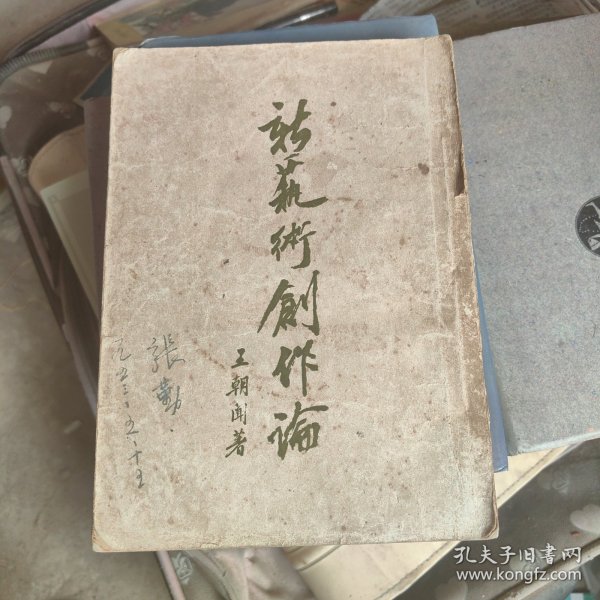 新藝術創作論
王朝聞著
張勤
一九五三·五·十五
孔夫子旧书网
www.kongfz.com